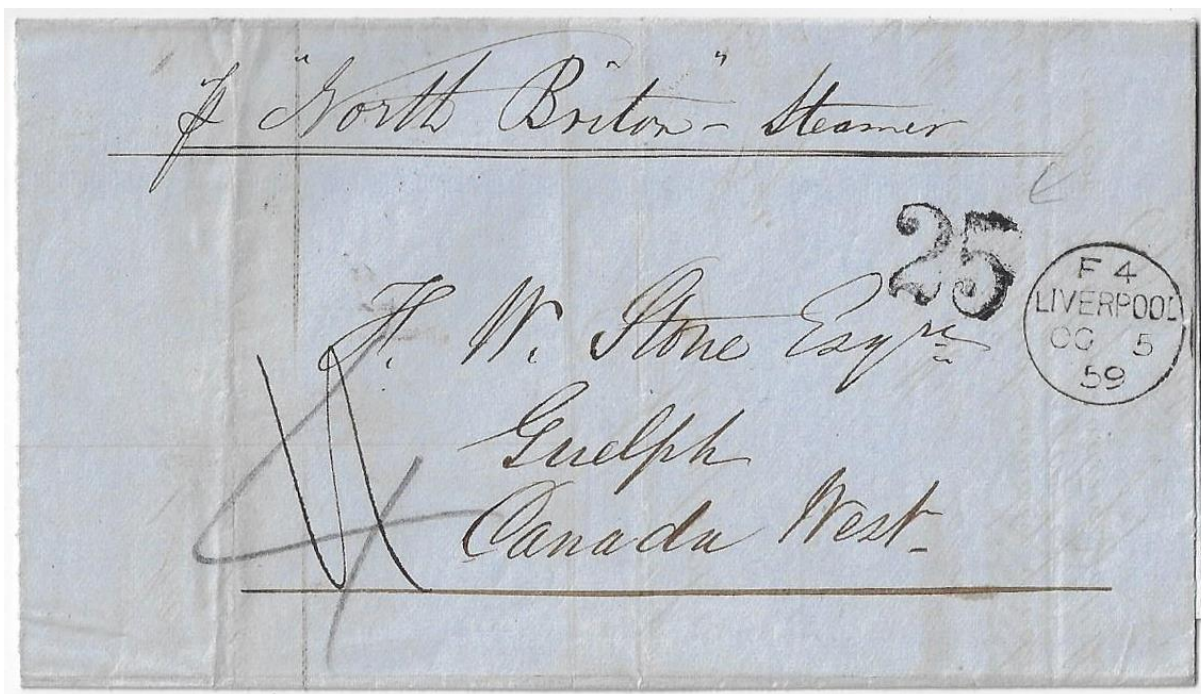 p "North Briton" Steamer
25
F 4
LIVERPOOL
OC 5
59
F. W. Stone Esqre
Guelph
Canada West
4